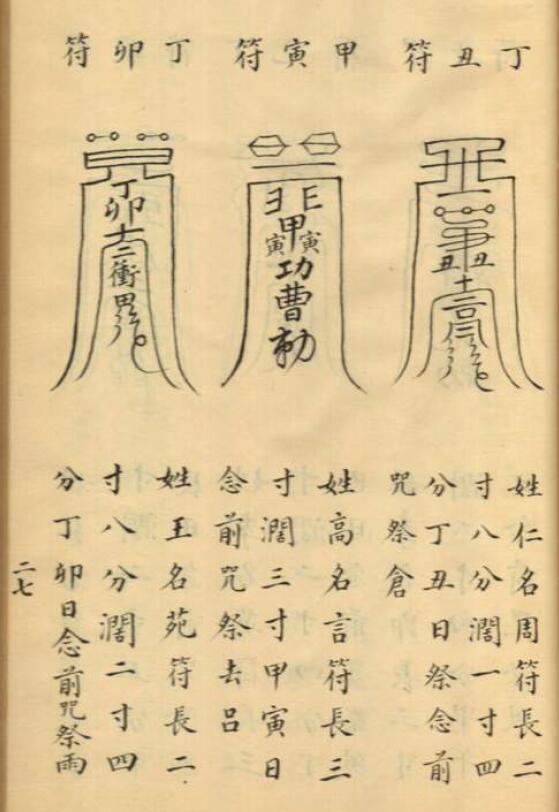 丁丑符
甲寅符
丁卯符
丑丑
甲寅寅
功曹
丁卯
十二
衝
姓仁名周符長二
寸八分濶一寸四
分丁丑日祭念前
咒祭倉
姓高名言符長三
寸濶三寸甲寅日
念前咒祭去呂
姓王名苑符長二
寸八分濶二寸四
分丁卯日念前咒祭雨
二七